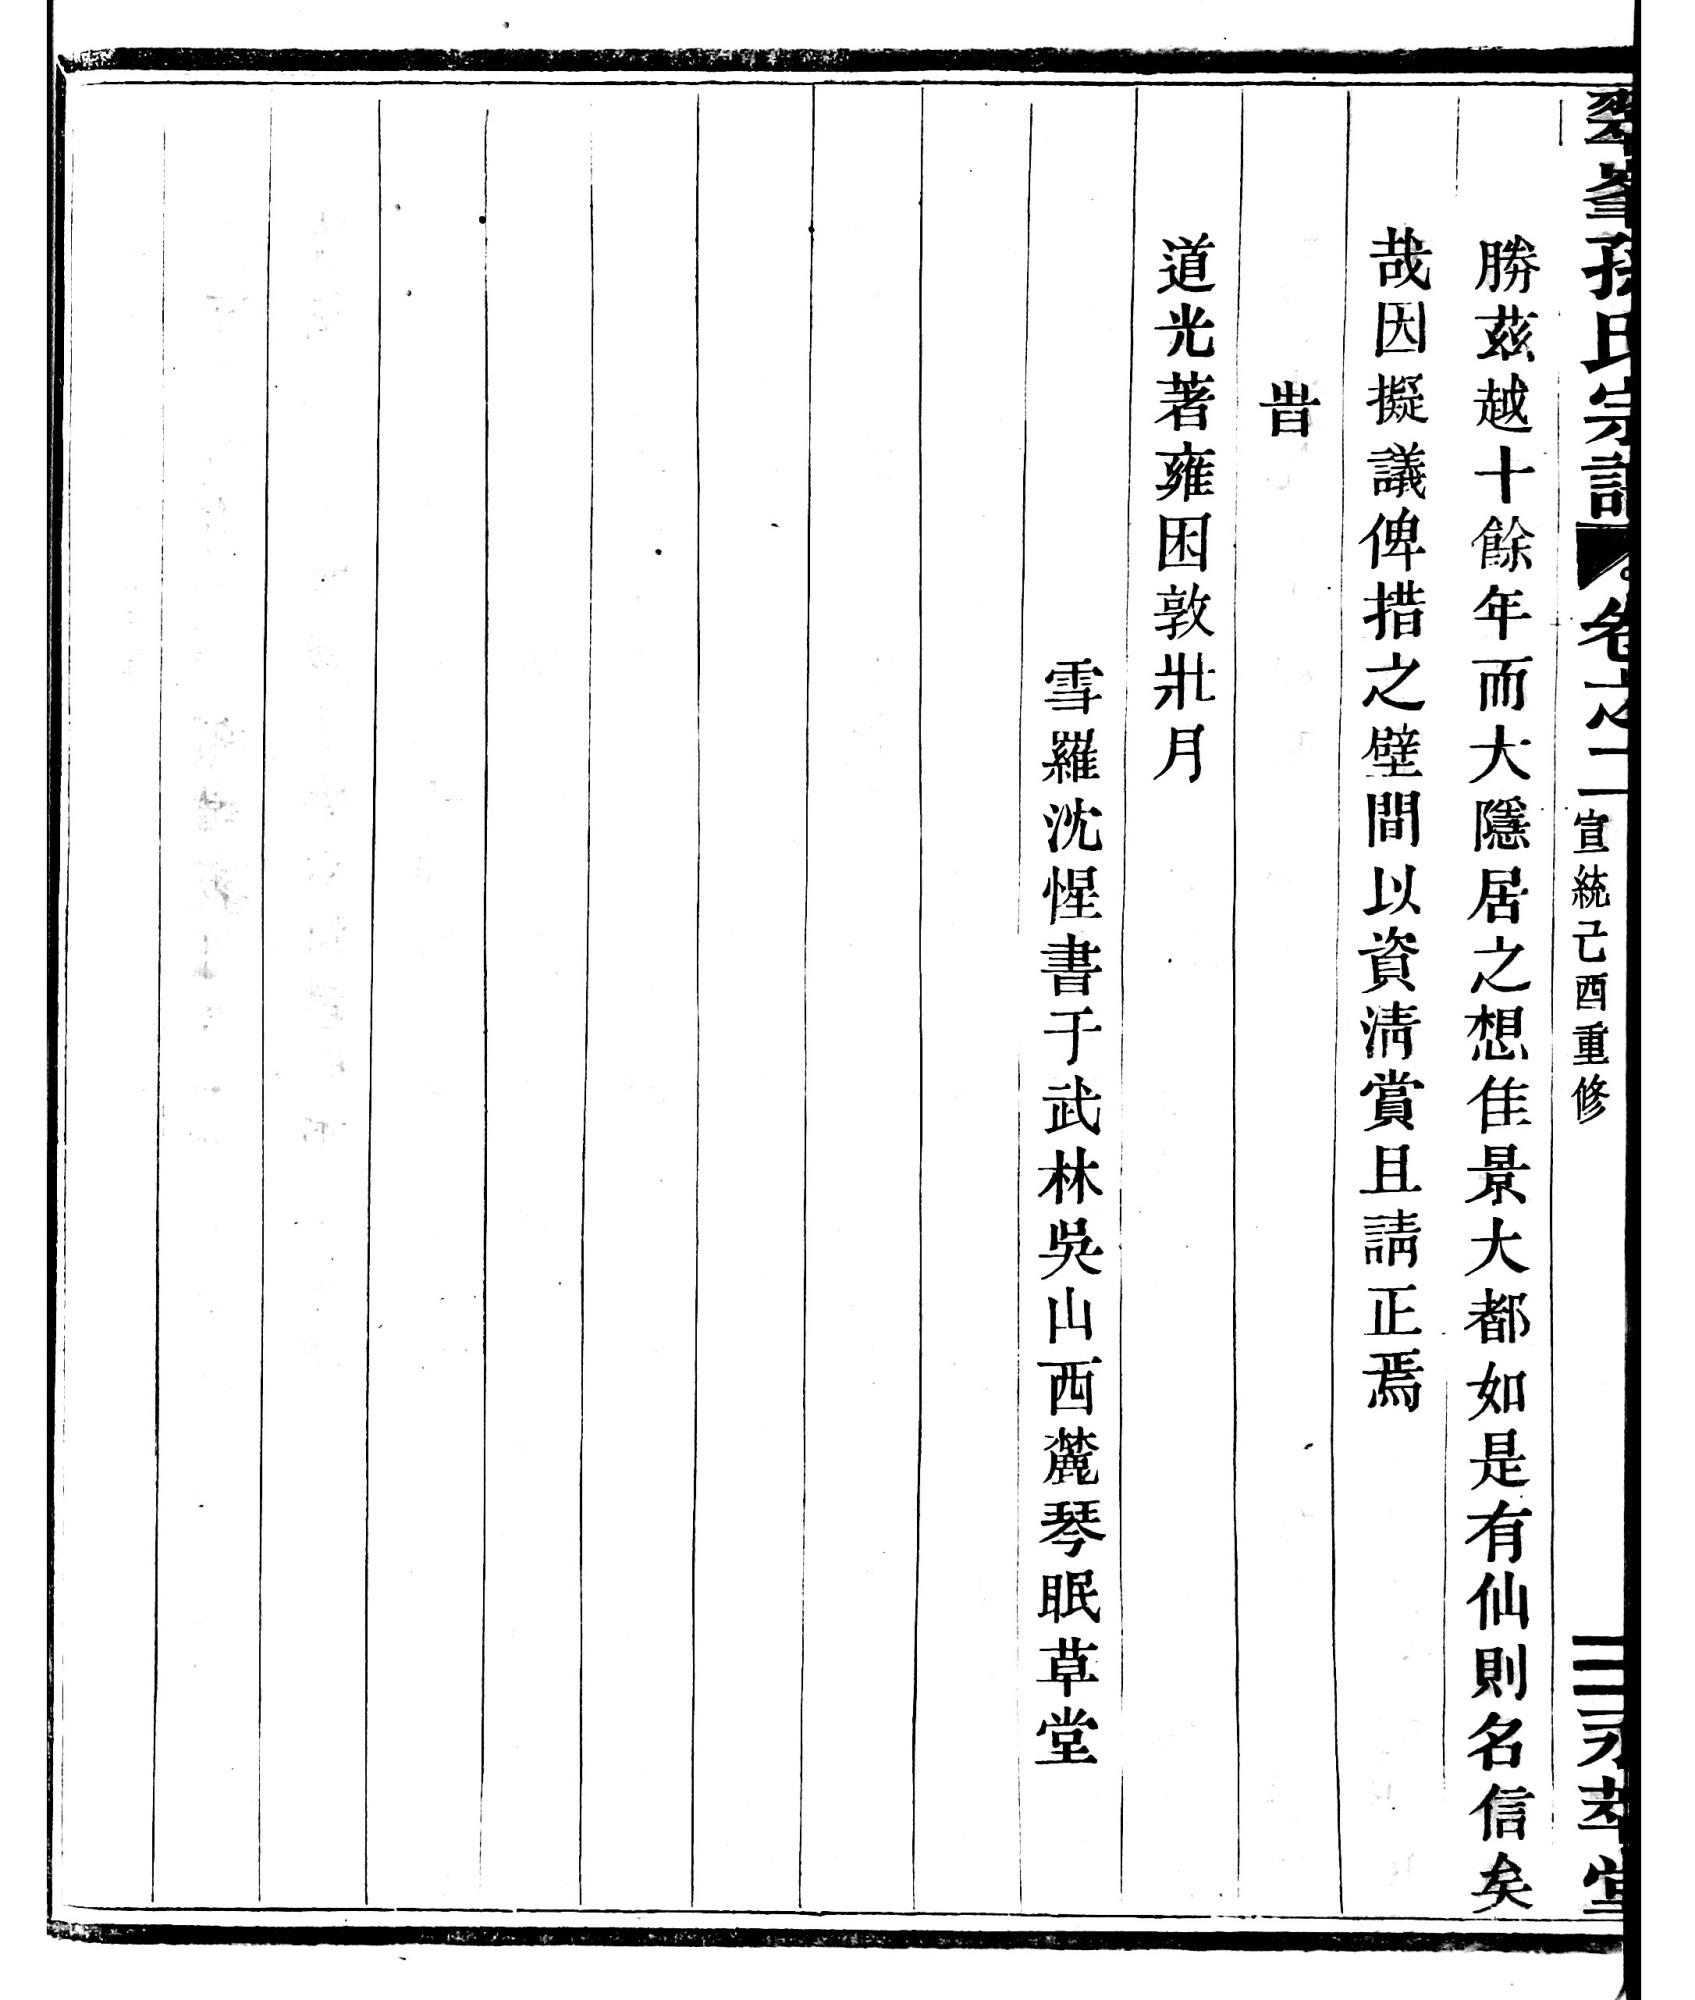 翠峯孫氏宗譜 卷之二 宣統己酉重修 永萃堂
勝茲越十餘年而大隱居之想佳景大都如是有仙則名信矣
哉因擬議俾措之壁間以資淸賞且請正焉
旹
道光著雍困敦壯月
雪羅沈惺書于武林吳山西麓琴眠草堂